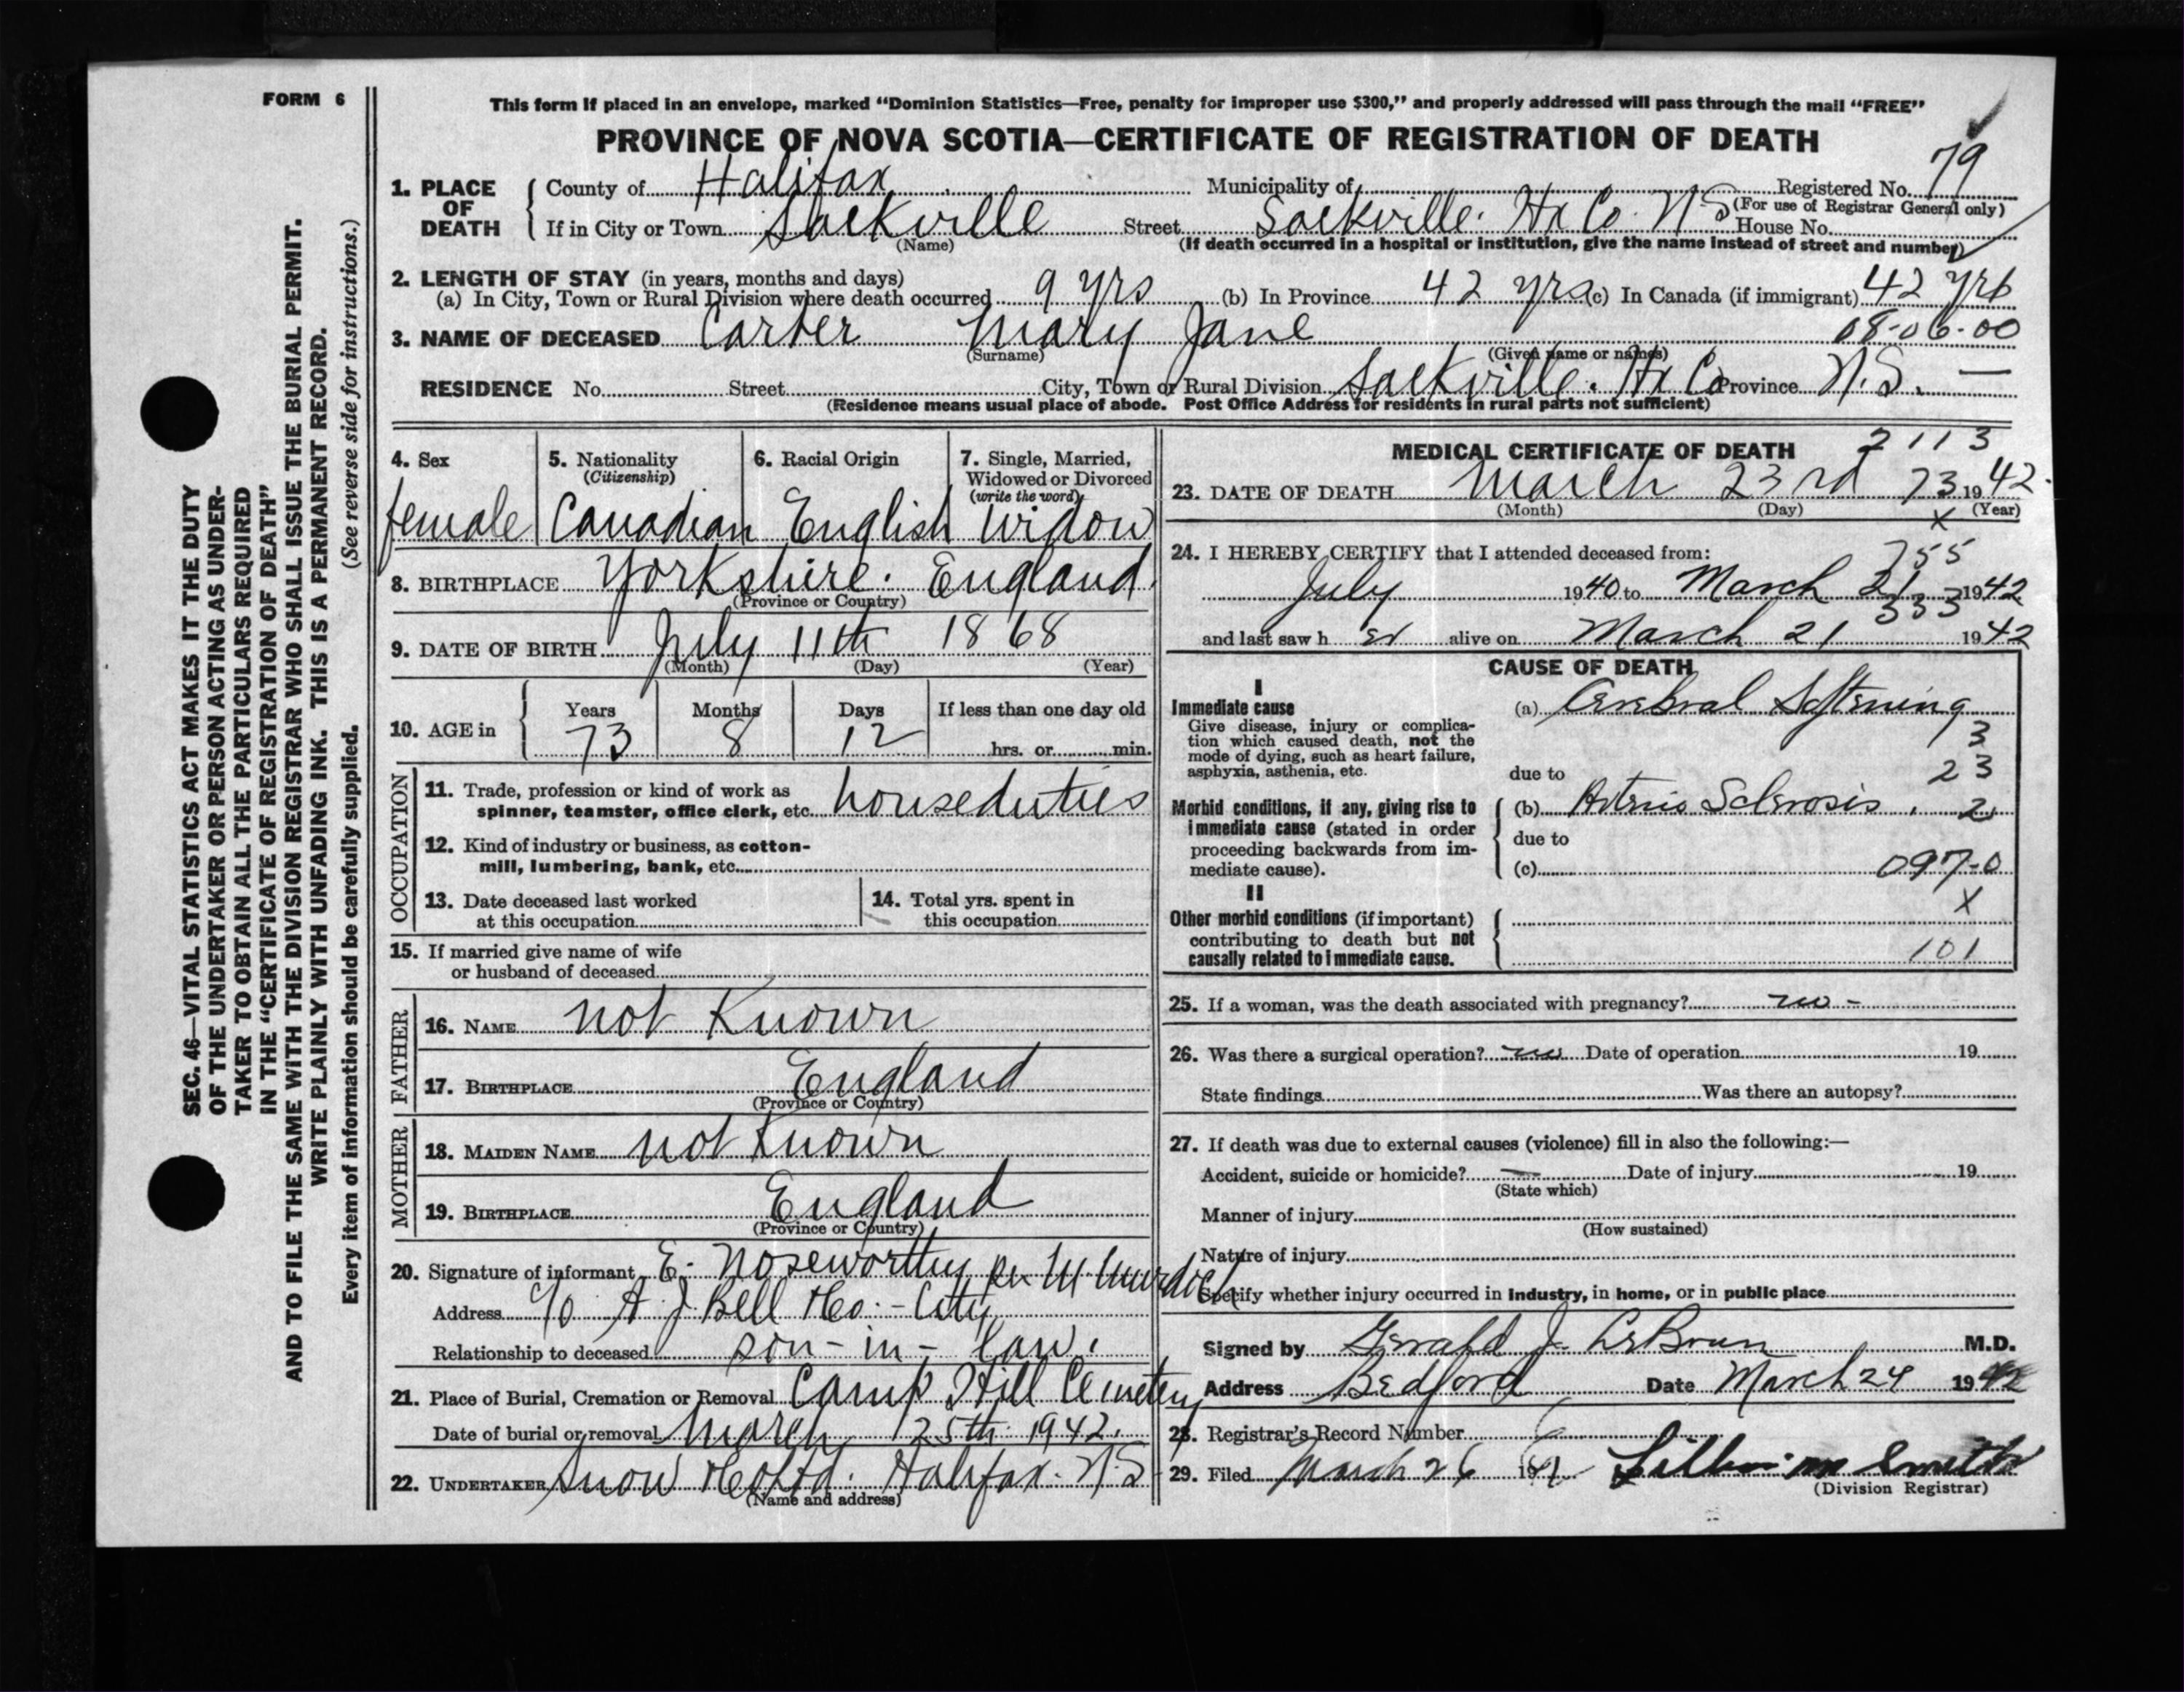 FORM 6
This form if placed in an envelope, marked “Dominion Statistics—Free, penalty for improper use $300,” and properly addressed will pass through the mail “FREE”
PROVINCE OF NOVA SCOTIA—CERTIFICATE OF REGISTRATION OF DEATH
1. PLACE OF DEATH { County of Halifax Municipality of Registered No. 79
(For use of Registrar General only)
If in City or Town Sackville Street Sackville. Hx Co. N S House No.
(Name) (If death occurred in a hospital or institution, give the name instead of street and number)
2. LENGTH OF STAY (in years, months and days)
(a) In City, Town or Rural Division where death occurred 9 yrs (b) In Province 42 yrs (c) In Canada (if immigrant) 42 yrs
3. NAME OF DECEASED Carter Mary Jane 08-06-00
(Surname) (Given name or names)
RESIDENCE No. Street City, Town or Rural Division Sackville. Hx Co Province N.S. —
(Residence means usual place of abode. Post Office Address for residents in rural parts not sufficient)
4. Sex female
5. Nationality (Citizenship) Canadian
6. Racial Origin English
7. Single, Married, Widowed or Divorced (write the word) Widow
8. BIRTHPLACE Yorkshire. England.
(Province or Country)
9. DATE OF BIRTH July 11th 1868
(Month) (Day) (Year)
10. AGE in { Years 73 Months 8 Days 12 If less than one day old
hrs. or min.
OCCUPATION
11. Trade, profession or kind of work as spinner, teamster, office clerk, etc. houseduties
12. Kind of industry or business, as cotton-mill, lumbering, bank, etc.
13. Date deceased last worked at this occupation
14. Total yrs. spent in this occupation
15. If married give name of wife or husband of deceased
FATHER
16. NAME not Known
17. BIRTHPLACE England
(Province or Country)
MOTHER
18. MAIDEN NAME not Known
19. BIRTHPLACE England
(Province or Country)
20. Signature of informant E. Noseworthy per M Murdoch
Address c/o A. J. Bell & Co. - City
Relationship to deceased son-in-law.
21. Place of Burial, Cremation or Removal Camp Hill Cemetery
Date of burial or removal March 25th 1942.
22. UNDERTAKER Snow & Co Ltd. Halifax. N.S
(Name and address)
MEDICAL CERTIFICATE OF DEATH 2113
23. DATE OF DEATH March 23rd 73 1942.
(Month) (Day) x (Year)
24. I HEREBY CERTIFY that I attended deceased from: 755
July 1940 to March 21 1942
333
and last saw h er alive on March 21 1942
CAUSE OF DEATH
I
Immediate cause
Give disease, injury or complication which caused death, not the mode of dying, such as heart failure, asphyxia, asthenia, etc.
(a) Cerebral Softening
3
due to 23
Morbid conditions, if any, giving rise to immediate cause (stated in order proceeding backwards from immediate cause).
(b) Arterio Sclerosis. 2
due to
(c) 097-0
II x
Other morbid conditions (if important) contributing to death but not causally related to immediate cause.
101
25. If a woman, was the death associated with pregnancy? no -
26. Was there a surgical operation? no Date of operation 19
State findings Was there an autopsy?
27. If death was due to external causes (violence) fill in also the following:—
Accident, suicide or homicide? — Date of injury 19
(State which)
Manner of injury
(How sustained)
Nature of injury
Specify whether injury occurred in industry, in home, or in public place
Signed by Gerald J. LeBrun M.D.
Address Bedford Date March 24 1942
28. Registrar's Record Number 6
29. Filed March 26 19 M Smith
(Division Registrar)
SEC. 46—VITAL STATISTICS ACT MAKES IT THE DUTY
OF THE UNDERTAKER OR PERSON ACTING AS UNDER-
TAKER TO OBTAIN ALL THE PARTICULARS REQUIRED
IN THE “CERTIFICATE OF REGISTRATION OF DEATH”
AND TO FILE THE SAME WITH THE DIVISION REGISTRAR WHO SHALL ISSUE THE BURIAL PERMIT.
WRITE PLAINLY WITH UNFADING INK. THIS IS A PERMANENT RECORD.
Every item of information should be carefully supplied. (See reverse side for instructions.)